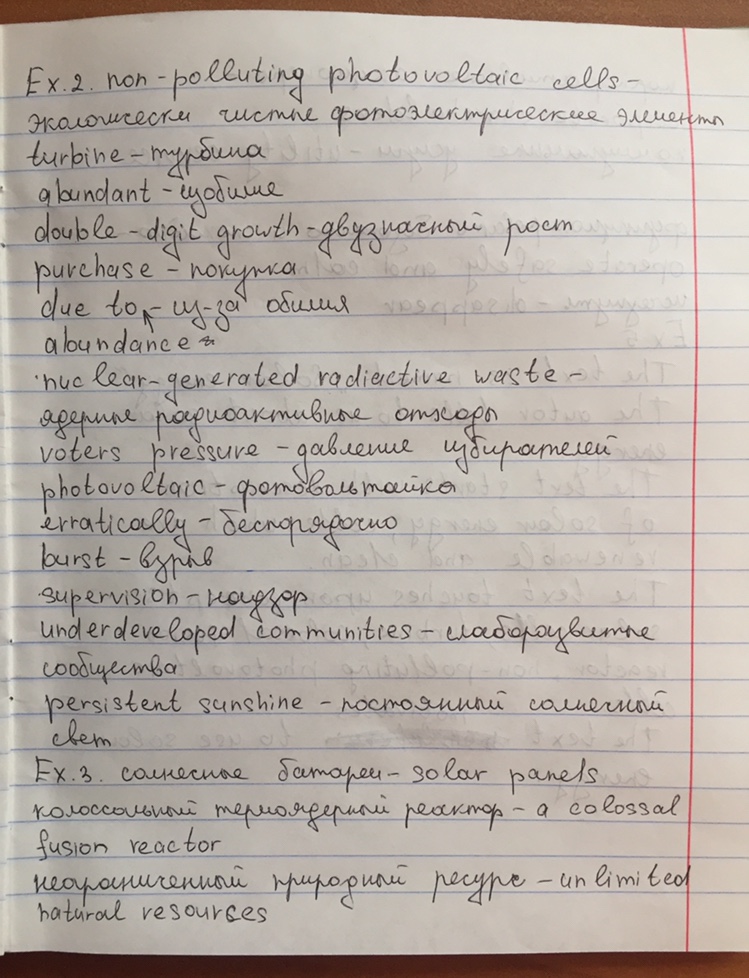 Ex.2. non-polluting photovoltaic cells -
экологически чистые фотоэлектрические элементы
turbine - турбина
abundant - изобилие
double - digit growth - двузначный рост
purchase - покупка
due to - из-за обилия
abundance
nuclear-generated radiactive waste -
ядерные радиоактивные отходы
voters pressure - давление избирателей
photovoltaic - фотовольтайка
erratically - беспорядочно
burst - взрыв
supervision - надзор
underdeveloped communities - слаборазвитые
сообщества
persistent sunshine - постоянный солнечный
свет
Ex.3. солнесные батареи - solar panels
колоссальный термоядерный реактор - a colossal
fusion reactor
неограниченный природный ресурс - unlimited
natural resources